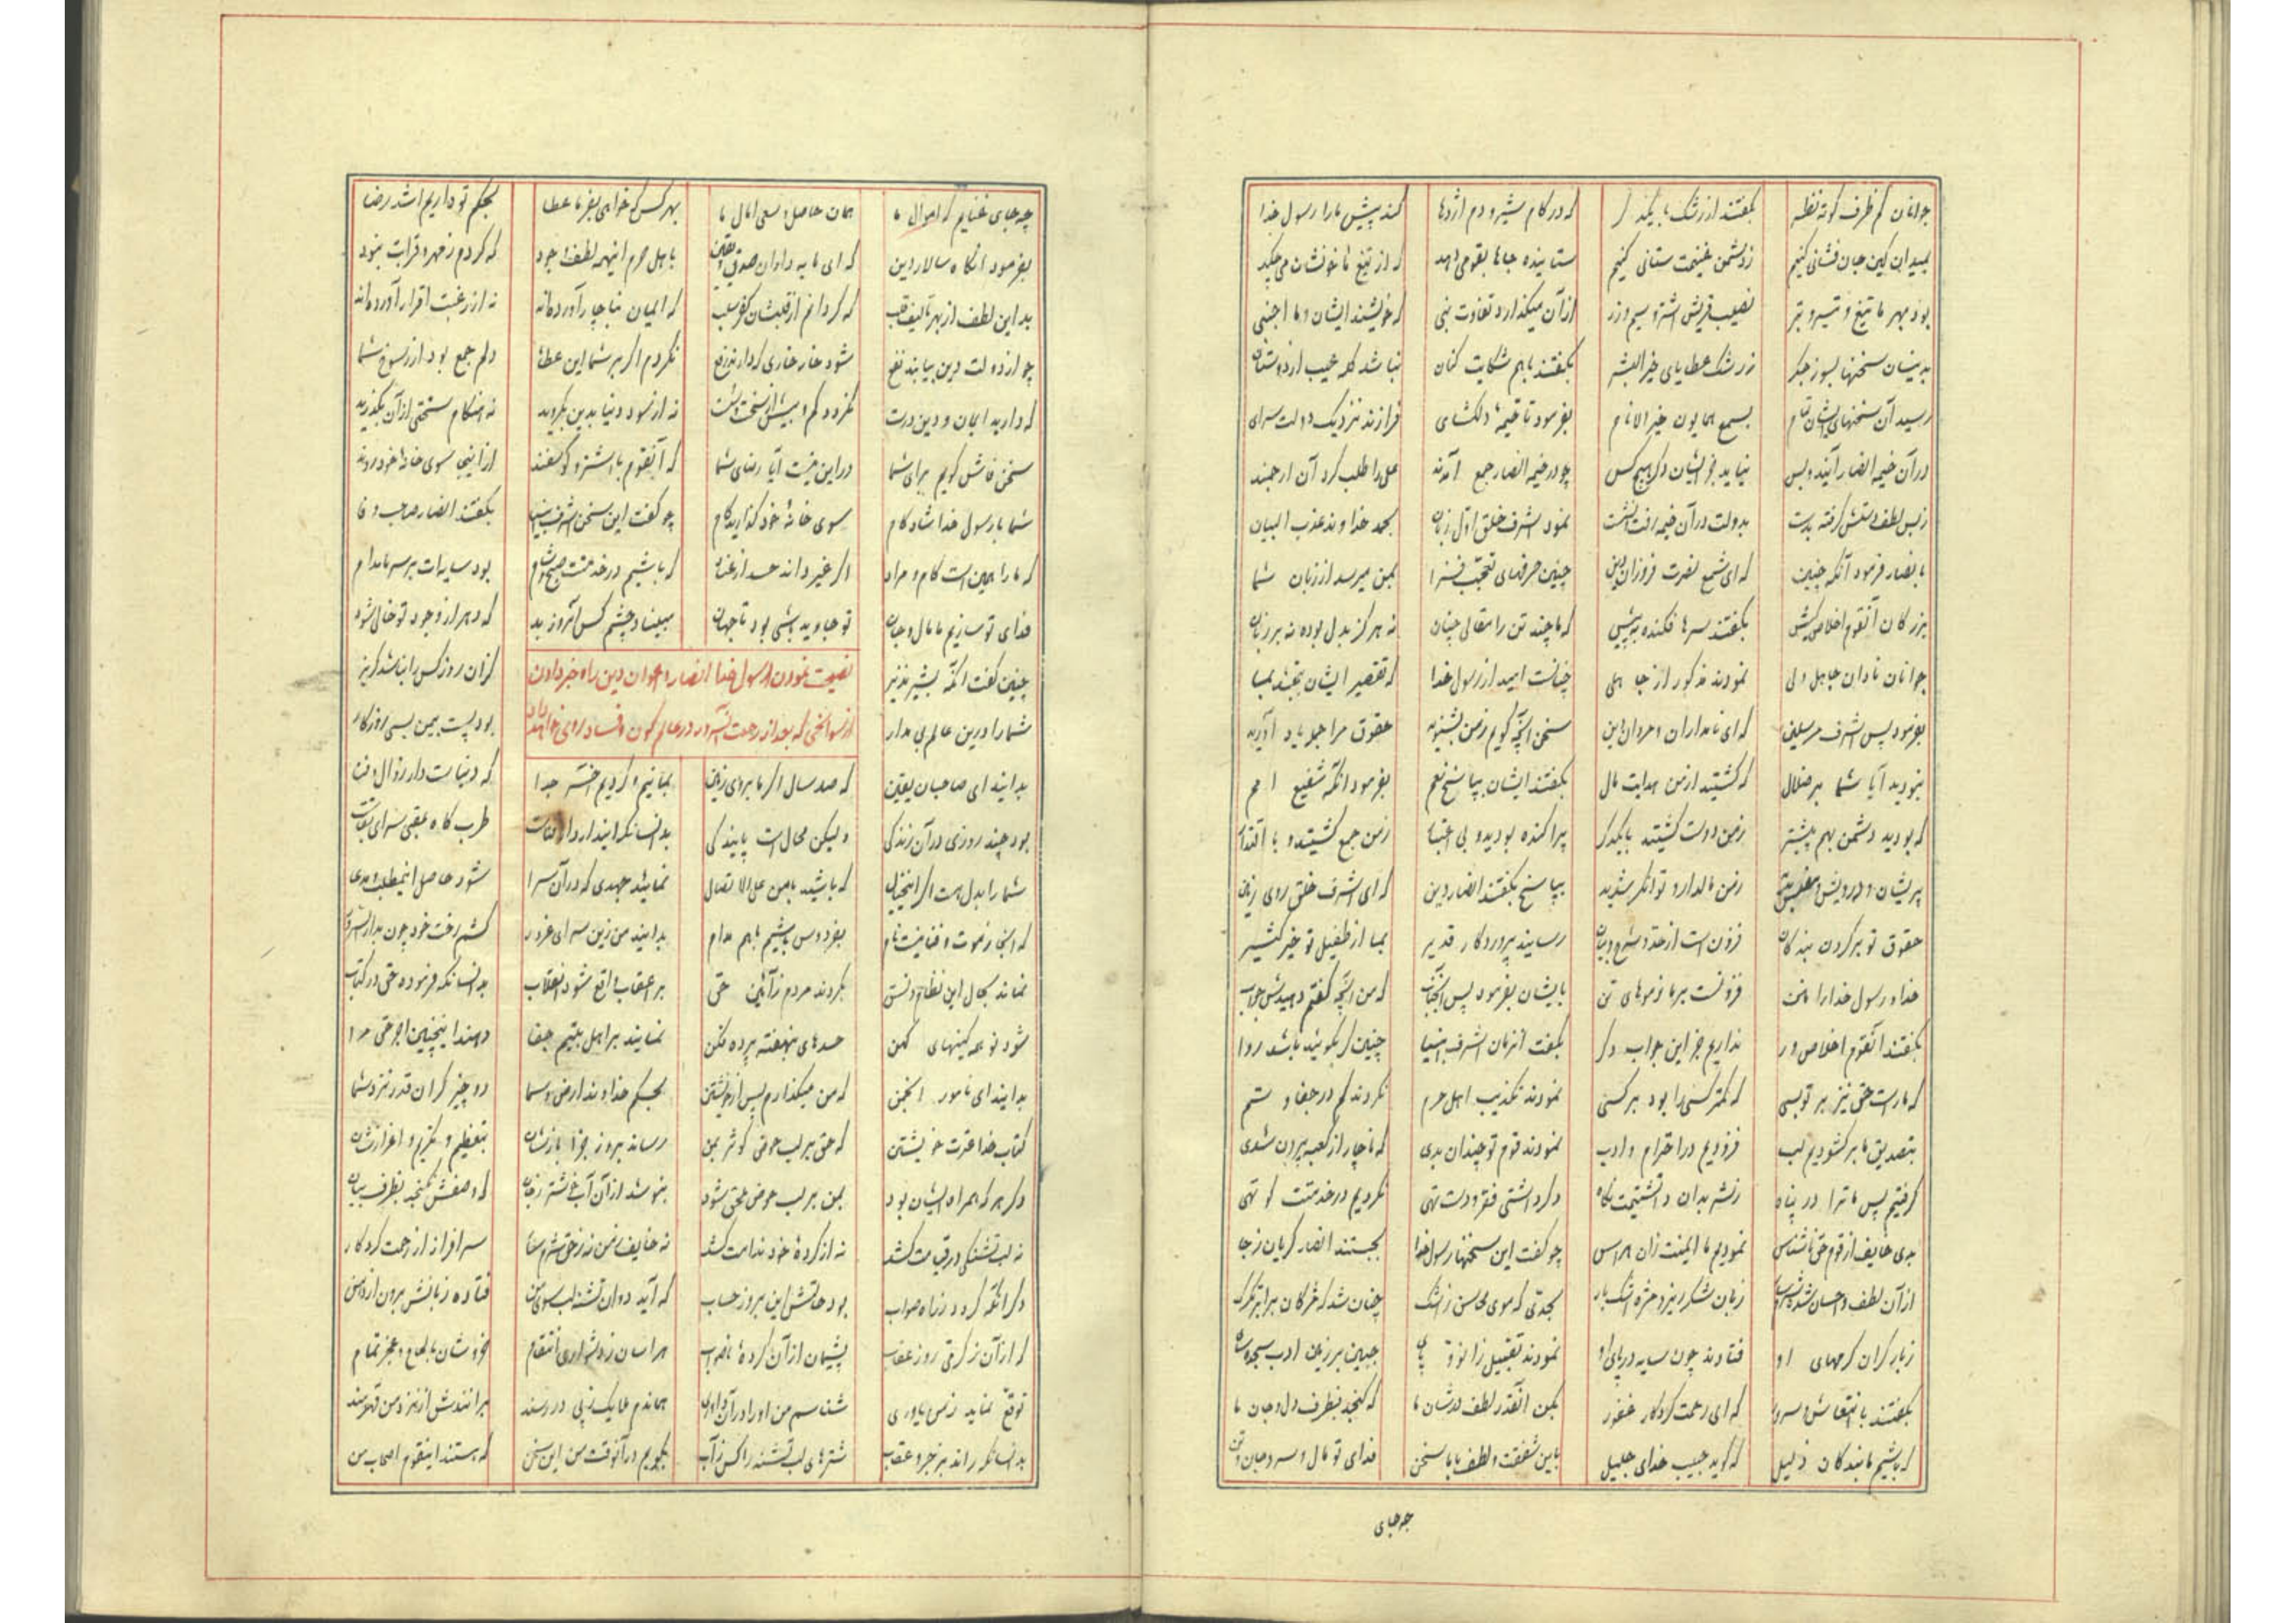 جوانان کم ظرف کوته نظر بگفتند از رشک با یکدگر که در کام شیر و دم اژدها کند پیش ما را رسول خدا
بمیدان کین جان فشانی کنیم ز دشمن غنیمت ستانی کنیم ستاینده جانها بقومی دهد که از تیغ ما خونشان می‌چکد
بود بهر ما تیغ و تیر و تبر نصیب قریش اشتر و سیم و زر از آن میگذارد تفاوت بنی که خویشند ایشان و ما اجنبی
بدینسان سخنها بسوز جگر ز رشک عطایای خیر البشر بگفتند باهم شکایت کنان نباشد گله عیب از دوستان
رسید آن سخنهای ایشان تمام بسمع همایون خیر الانام بفرمود تا خیمه دلکشای فرازند نزدیک دولت سرای
در آن خیمه انصار آیند و بس نیاید جز ایشان دگر هیچ کس چو در خیمه انصار جمع آمدند علی را طلب کرد آن ارجمند
ز بس لطف دستش گرفته بدست بدولت در آن خیمه رفت و نشست نمود اشرف خلق اول زبان بحمد خداوند عذب البیان
بانصار فرمود آنگه چنین که ای شمع نصرت فروزان دین چنین حرفهای تعجب فزا بمن میرسد از زبان شما
بزرگان آنقوم اخلاص کیش بگفتند سرها فکنده به پیش که ما چند تن را مقالی چنان نه هرگز بدل بوده نه بر زبان
جوانان نادان جاهل ولی نمودند مذکور از جاهلی چنانست امید از رسول خدا که تقصیر ایشان ببخشد بما
بفرمود پس اشرف مرسلین که ای نامداران و مردان دین سخن آنچه گویم ز من بشنوید حقوق مرا جمله یاد آورید
نبودید آیا شما بر ضلال که گشتید از من هدایت مآل بگفتند ایشان بپاسخ نعم بفرمود آنگه شفیع امم
که بودید دشمن بهم پیشتر ز من دوست گشتید با یکدگر پراکنده بودید و بی اعتبار ز من جمع گشتید و با اقتدار
پریشان و درویش و مفلس بدید ز من مالدار و توانگر شدید بپاسخ بگفتند انصار دین که ای اشرف خلق روی زمین
حقوق تو بر گردن بندگان فزون است از حد و شرح و بیان رسانید پروردگار قدیر بما از طفیل تو خیر کثیر
خدا و رسول خدا را منت فزونست بر ما ز موهای تن بایشان بفرمود پس آنجناب که من آنچه گفتم دهیدش جواب
بگفتند آنقوم اخلاص ور نداریم جز این جواب دگر بگفت آنزمان اشرف انبیا چنین گر بگوئید باشد روا
که ما راست حق نیز بر تو بسی که کمتر کسی را بود بر کسی نمودند تکذیب اهل حرم نکردند کم در جفا و ستم
بتصدیق ما برگشودیم لب فزودیم در احترام و ادب نمودند قوم تو چندان بدی که ناچار از کعبه بیرون شدی
گرفتیم پس ما ترا در پناه ز شر بدان داشتیمت نگاه دگر داشتی فقر و دست تهی نکردیم در خدمتت کوتهی
بدی خایف از قوم حق ناشناس نمودیم ما ایمنت زان هراس چو گفت این سخنها رسول خدا بجستند انصار گریان ز جا
از آن لطف و احسان زبان شکر ریز و مژه اشک بار بحدی که موی محاسن ز اشک چنان شد که مژگان
ز بار گران کرمهای او فتادند چون سایه در پای او نمودند تقبیل زانو و پای جبین بر زمین ادب سجده‌سای
بگفتند با انتعاش و سرور که ای رحمت کردگار غفور بکن آنقدر لطف در شان ما که گنجد بظرف دل و جان ما
که باشیم ما بندگان ذلیل که گوید حبیب خدای جلیل باین شفقت و لطف با ما سخن فدای تو مال و سر و جان و تن
چه جای
چه جای غنایم که اموال ما همان حاصل و سعی امال ما بهر کس که خواهی بفرما عطا بحکم تو داریم اشد رضا
بفرمود آنگاه سالار دین که ای مایه داران صدق و یقین باهل حرم اینهمه لطف و جود که کردم ز مهر و قرابت نبود
بد این لطف از بهر تالیف قلب که گردانم از قلبشان کفر سلب که ایمان بناچار آورده‌اند نه از رغبت اقرار آورده‌اند
چو از دولت دین بیابند نفع شود خار خاری که دارند رفع نکردم اگر بر شما این عطا دلم جمع بود از رسوخ شما
که دارید ایمان و دین درست نگردد کم و بیش از سخت و سست نه از سود دنیا بدین بگروید نه هنگام سختی از آن بگذرید
سخن فاش گویم برای شما در این چیست آیا رضای شما که آنقوم با اشتر و گوسفند از اینجا سوی خانه خود روند
شما با رسول خدا شادکام سوی خانه خود گذارید گام چو گفت این سخن اشرف انبیا بگفتند انصار صاحب وفا
که ما را همین است کام و مراد که باشیم در خدمتت صبح و شام بود سایه‌ات بر سر ما مدام
فدای تو سازیم ما مال و جان تو جاوید باشی بود تا جهان مبیناد چشم کس آنروز بد که دهر از وجود تو خالی شود
نصیحت نمودن رسول خدا انصار و اعوان دین را و خبر دادن
از سوانحی که بعد از رحلت آنسرور در عالم کون و فساد روی خواهد داد
چنین گفت آنگه بشیر نذیر کزان روز کس را نباشد گریز
شما را درین عالم بی مدار بود پست بمن بسی روزگار
بدانید ای صاحبان یقین که صد سال اگر ما بروی زمین بمانیم و گردیم آخر جدا که دنیاست دار زوال و فنا
بود چند روزی در آن زندگی ولیکن محال است پایندگی طرب گاه عقبی سرای بقاست
شما را بدل هست اگر اینخیال که باشید با من علی الاتصال نمائید جهدی که در آن سرا شود حاصل اینمطلب و مدعا
که آنجا ز موت و فنا نیست نام بفردوس باشیم باهم مدام بدانید من زین سرای غرور کشم رخت خود چون بدار السرور
نماند بحال این نظام و نسق بگردند مردم ز آئین حق بر اعقاب واقع شود انقلاب بدانسانکه فرموده حق در کتاب
شود نو همه کینهای کهن حسدهای نهفته پرده فکن نمایند بر اهل بیتم جفا دهند اینچنین اجر حق مرا
بدانید ای نامور انجمن که من میگذارم پس از خویشتن بحکم خداوند ارض و سما دو چیز گران قدر نزد شما
کتاب خدا عترت خویشتن که حق بر لب حوض کوثر بمن رساند بروز جزا بازشان بتعظیم و تکریم و اعزازشان
دگر هر که همراه ایشان بود بمن بر لب حوض ملحق شود بنوشد از آن آب که وصفش نگنجد بظرف بیان
نه لب تشنگی در قیامت کشد نه از کرده خود ندامت کشد نه خایف ز من نه ز حق شرمسار سرافراز از رحمت کردگار
دگر آنکه گردد ز راه صواب بود حالتش این بروز حساب که آید دوان تشنه لب سوی من فتاده زبانش برون از دهن
که از آن ز کرفی روز عقاب پشیمان از آن کرده ناصواب هراسان ز دشواری انتقام خروشان بالحاح و عجز تمام
توقع نماید ز من یاوری شناسم من او را در آن داوری هماندم ملایک ز پی در رسند برانندش از نزد من
بدانسانکه راند بزجر و عقاب شترهای لب تشنه را کس ز آب بگویم در آنوقت من این سخن که هستند اینقوم اصحاب من